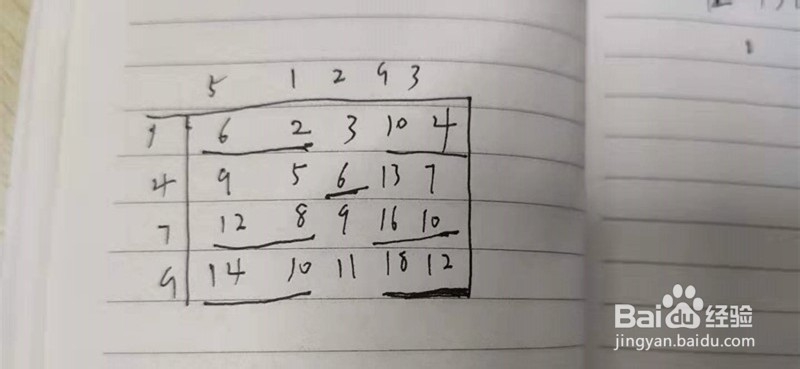 5 1 2 9 3
1 6 2 3 10 4
4 9 5 6 13 7
7 12 8 9 16 10
9 14 10 11 18 12
Baidu 经验
jingyan.baidu.com